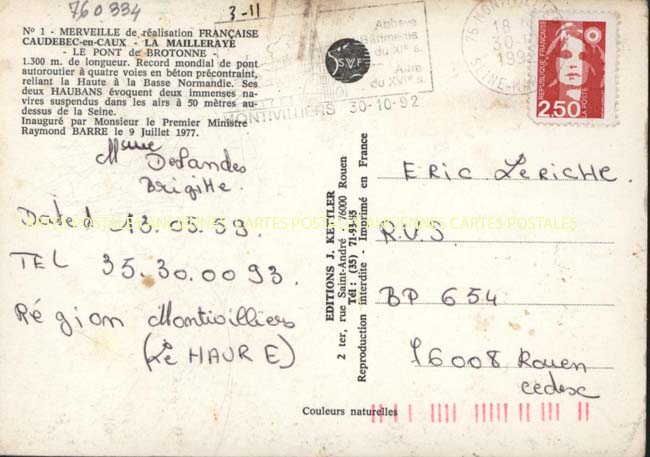 760334
3-11
Nº 1 - MERVEILLE de réalisation FRANÇAISE
CAUDEBEC-en-CAUX - LA MAILLERAYE
- LE PONT de BROTONNE -
1.300 m. de longueur. Record mondial de pont
autoroutier à quatre voies en béton précontraint,
reliant la Haute à la Basse Normandie. Ses
deux HAUBANS évoquent deux immenses na-
vires suspendus dans les airs à 50 mètres au-
dessus de la Seine.
Inauguré par Monsieur le Premier Ministre
Raymond BARRE le 9 Juillet 1977.
Mme Deslandes
Brigitte.
53.05.59.
TEL 35.30.00 93.
Région Montivilliers
(Le HAVRE)
SVF
Abbaye
Bâtiments
du XIe s.
Aure
du XVIe s.
MONTIVILLIERS 30-10-92
76 MONTIVILLIERS
18 H
SEINE-MAR
REPUBLIQUE FRANÇAISE
2,50
LA POSTE
EDITIONS J. KETTLER
2 ter, rue Saint-André - 76000 Rouen
Tél : (35) 71-93-95
Reproduction interdite Imprimé en France
ERIC LERICHE.
R.V.S.
BP 654
76008 Rouen
cedex
Couleurs naturelles
CARTES POSTALES ANCIENNES CARTES POSTALES